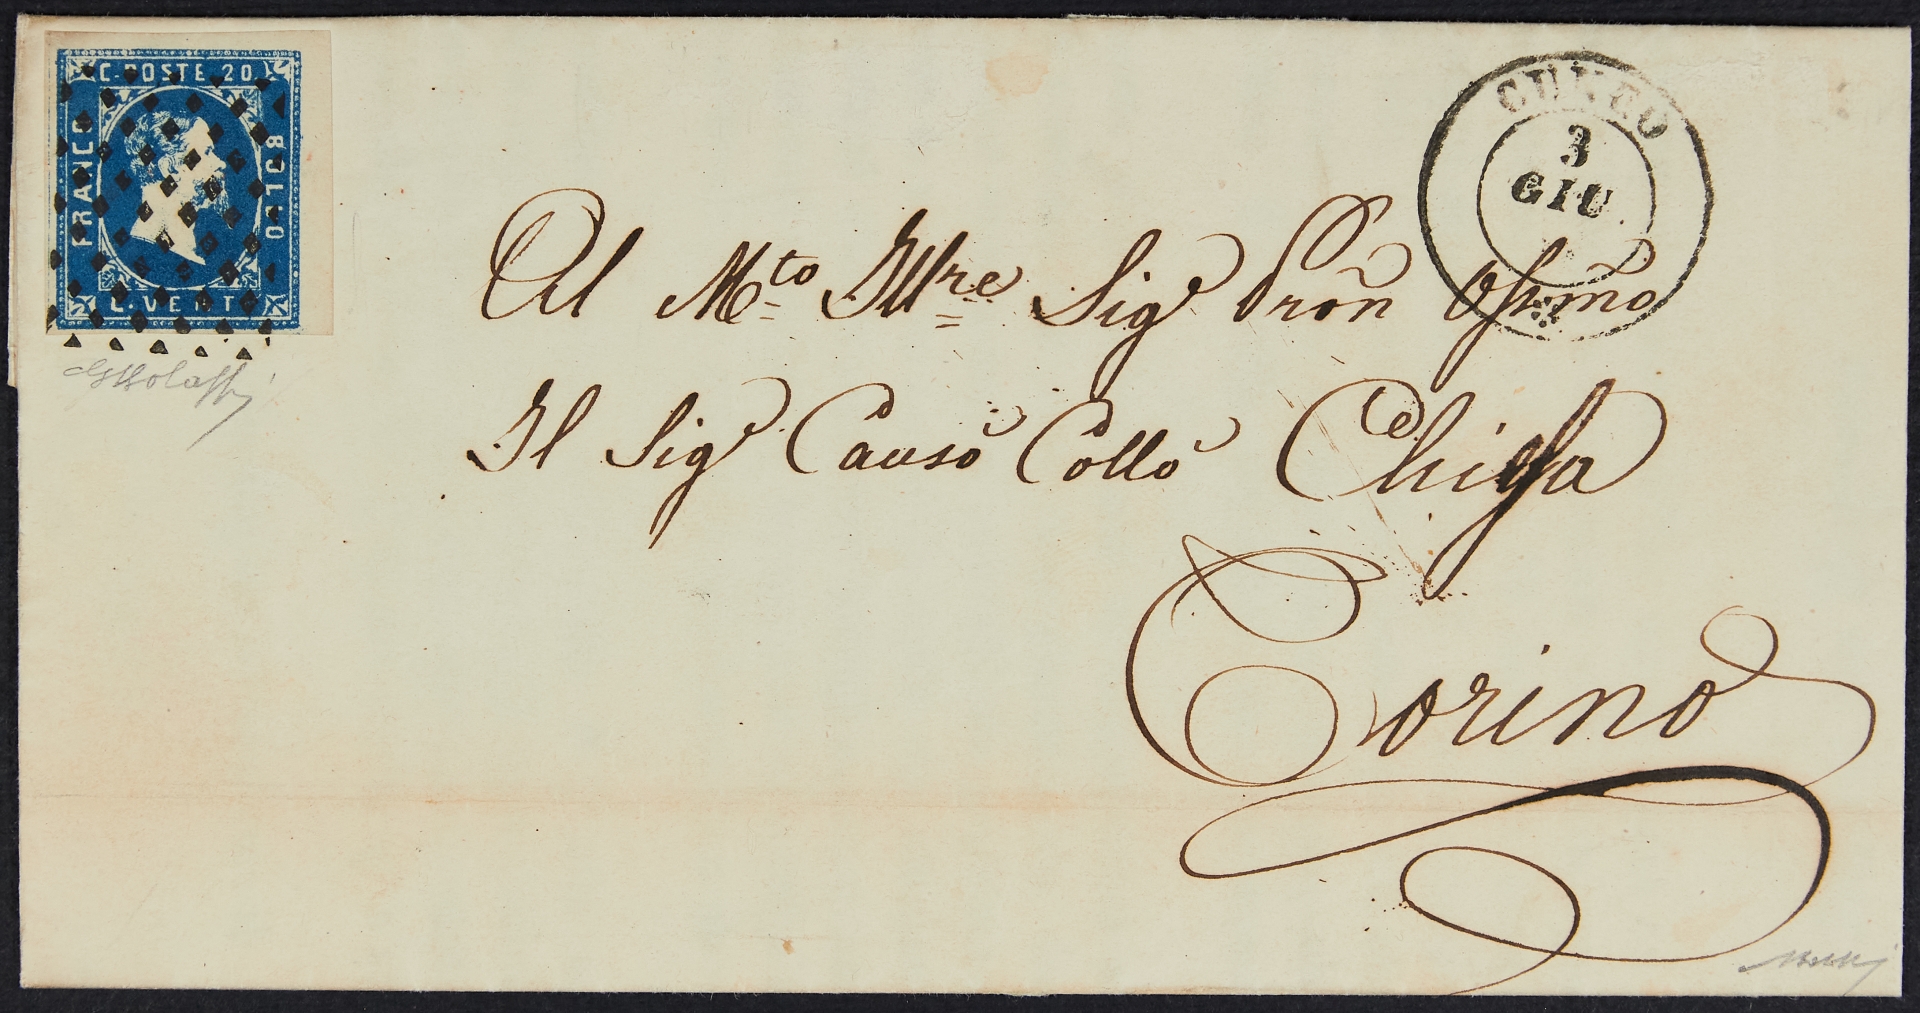 C. POSTE 20
FRANCO
BOLLO
C. VENTI
CUNEO
3
GIU
Al M.to Ill.re Sig.r Pron Oss.mo
Il Sig.r Causo Collo Chiesa
Torino